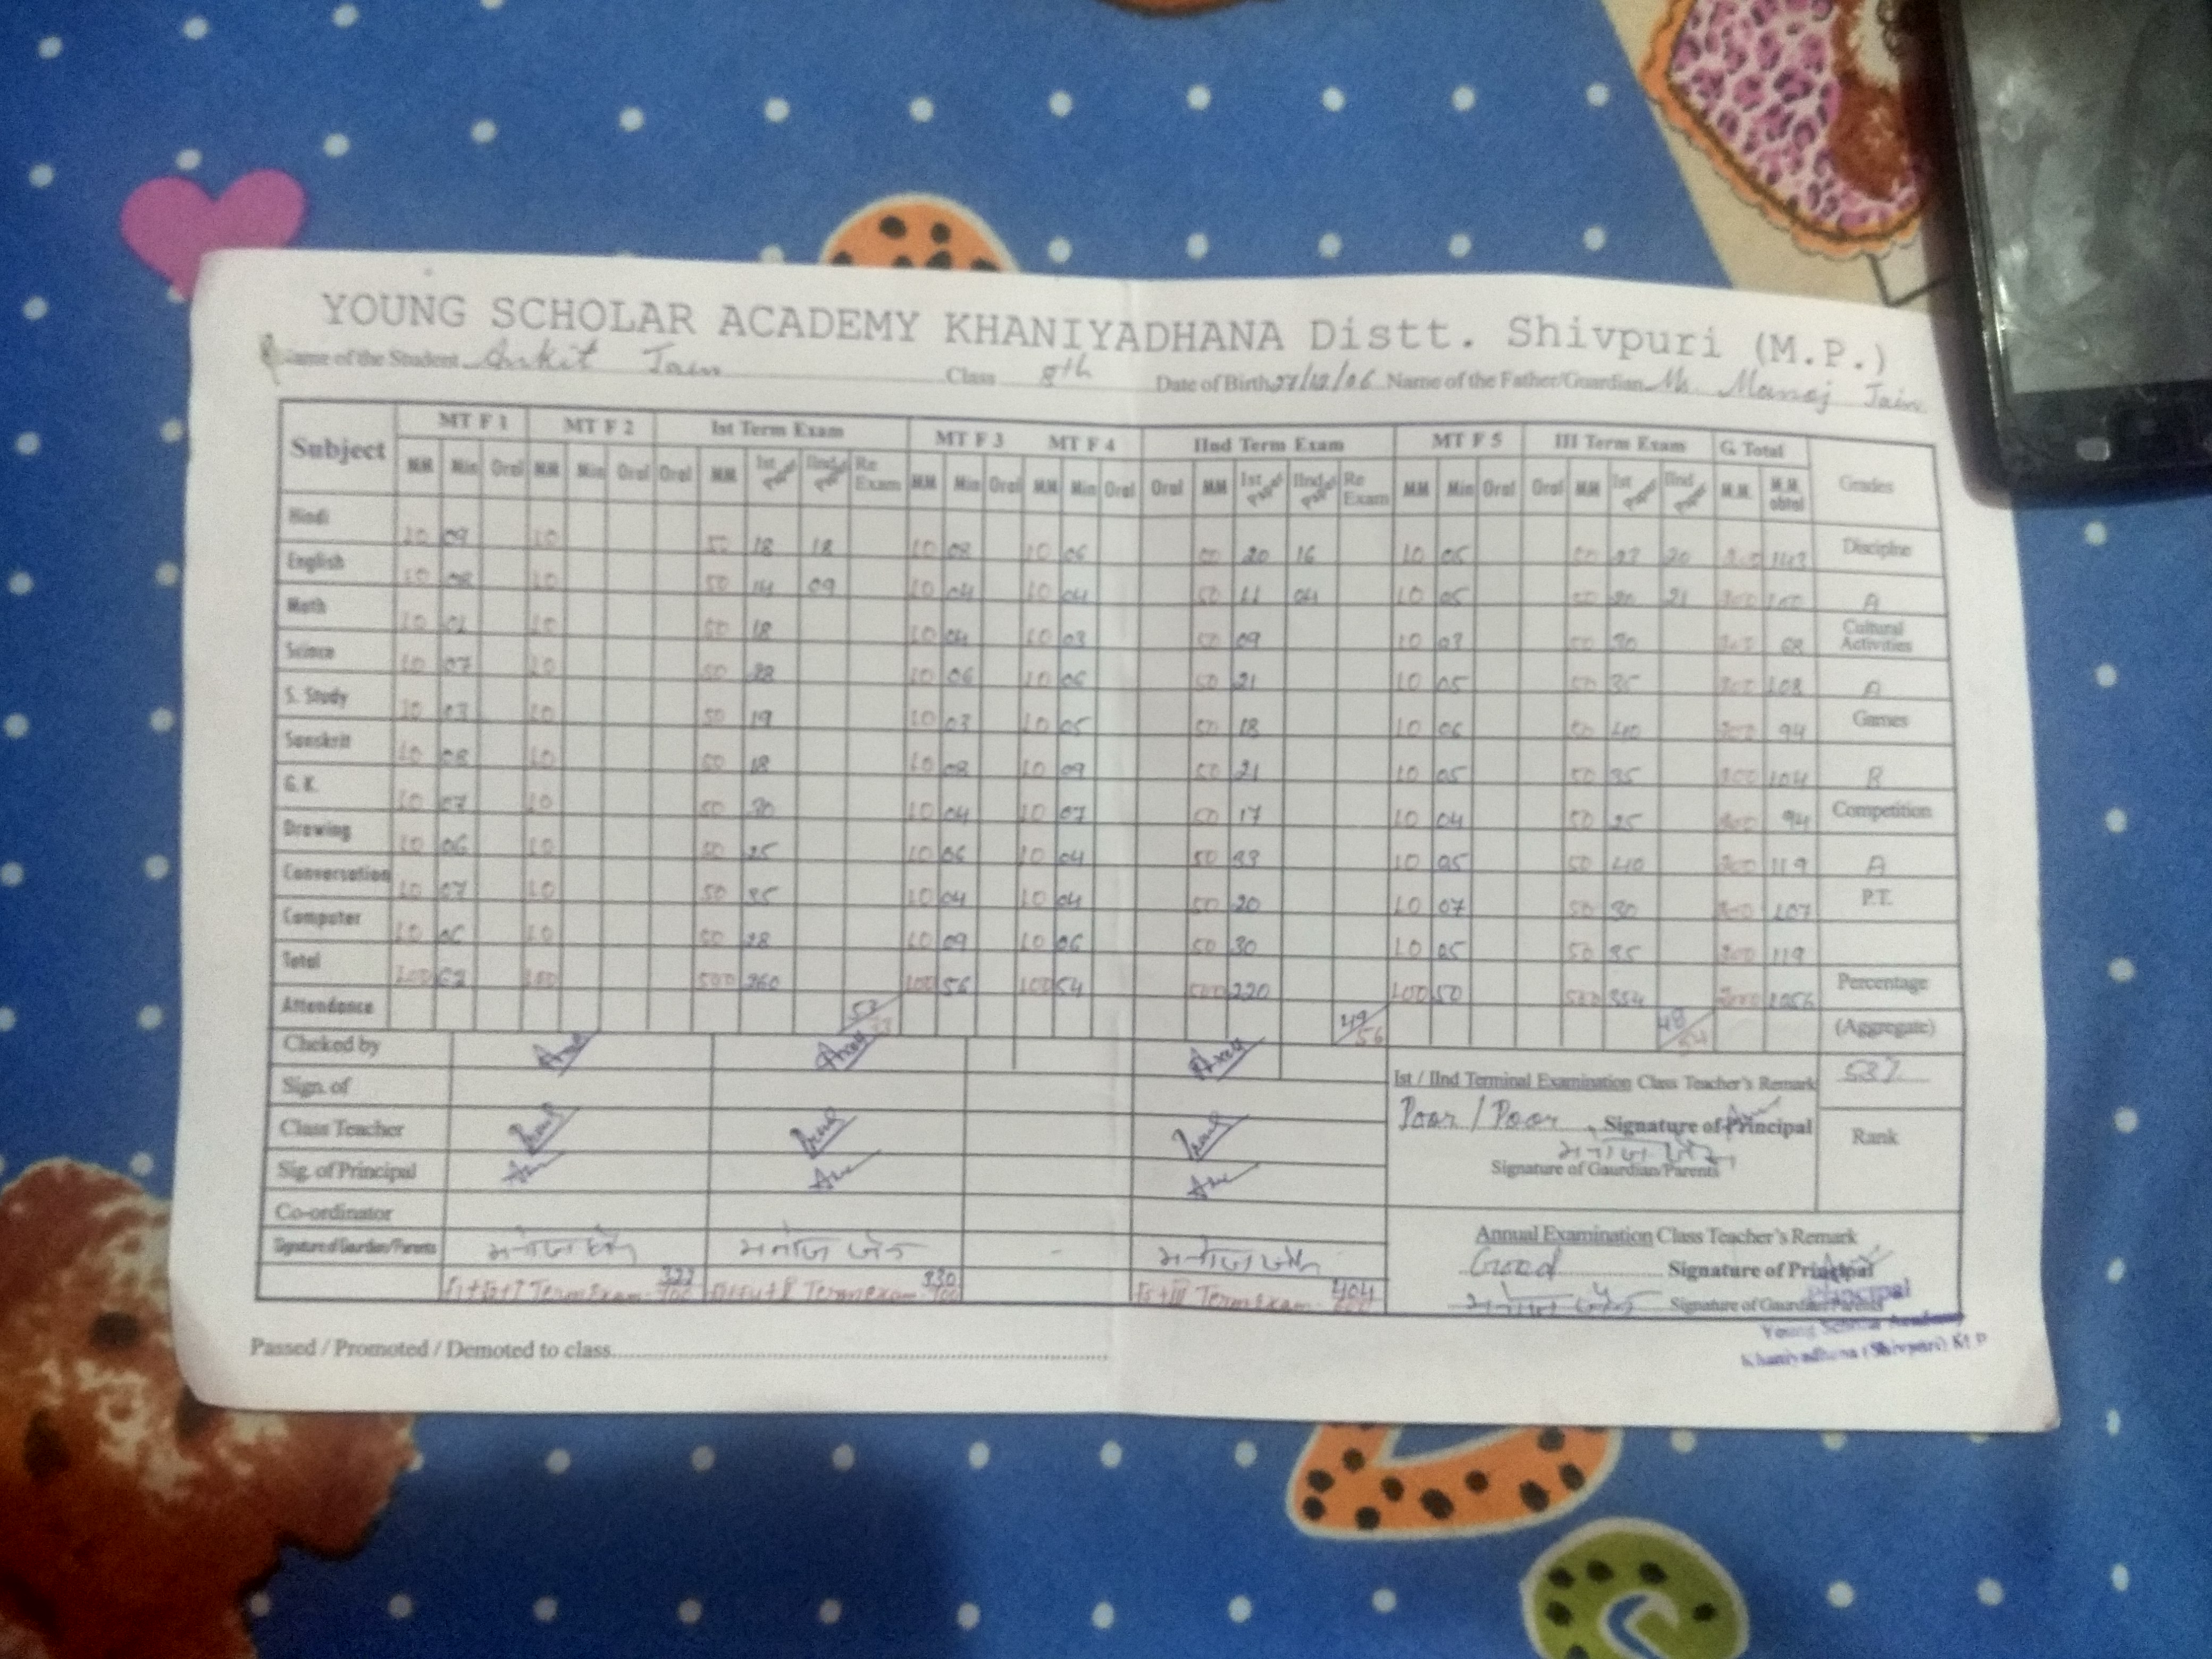 YOUNG SCHOLAR ACADEMY KHANIYADHANA Distt. Shivpuri (M.P.)
Name of the Student Ankit Jain Class 8th Date of Birth 27/12/06 Name of the Father/Guardian Mr. Manoj Jain
Subject MT F 1 MT F 2 Ist Term Exam MT F 3 MT F 4 IInd Term Exam MT F 5 III Term Exam G. Total Grades
MM Min Oral MM Min Oral Oral MM Ist Paper IInd Paper Re Exam MM Min Oral MM Min Oral Oral MM Ist Paper IInd Paper Re Exam MM Min Oral Oral MM Ist Paper IInd Paper M.M. M.M. obtai
Hindi 10 09 10 50 18 18 10 08 10 06 50 20 16 10 05 50 20 200 143 Discipline
English 10 08 10 50 14 09 10 04 10 04 50 11 04 10 05 50 20 21 200 100 A
Math 10 10 50 18 10 04 10 03 50 09 10 03 50 30 200 68 Cultural Activities
Science 10 07 10 50 28 10 06 10 06 50 21 10 05 50 35 200 108 A
S. Study 10 03 10 50 19 10 03 10 05 50 18 10 06 50 40 200 94 Games
Sanskrit 10 08 10 50 18 10 08 10 09 50 21 10 05 50 35 200 104 B
G. K. 10 07 10 50 30 10 04 10 07 50 17 10 04 50 25 200 94 Competition
Drewing 10 06 10 50 25 10 06 10 04 50 33 10 05 50 40 200 119 A
Conversation 10 07 10 50 35 10 04 10 04 50 20 10 07 50 30 200 107 P.T.
Computer 10 06 10 50 28 10 09 10 06 50 30 10 05 50 35 200 119
Total 100 62 100 500 260 100 56 100 54 500 220 100 50 500 354 2000 1056 Percentage
Attendance 53 49/56 48/54 (Aggregate)
Cheked by
53%
Sign. of
Ist / IInd Terminal Examination Class Teacher's Remark
Class Teacher
Poor / Poor Signature of Principal Rank
मनोज जैन
Sig. of Principal
Signature of Gaurdian/Parents
Co-ordinator
Annual Examination Class Teacher's Remark
Signature of Gaurdian/Parents मनोज जैन मनोज जैन मनोज जैन
Good Signature of Principal
Term Exam 322/700 Term exam 330/700 Term Exam 404
मनोज जैन Signature of Gaurdian/Parents
Principal
Young Scholar Academy
Khaniyadhana (Shivpuri) M.P
Passed / Promoted / Demoted to class